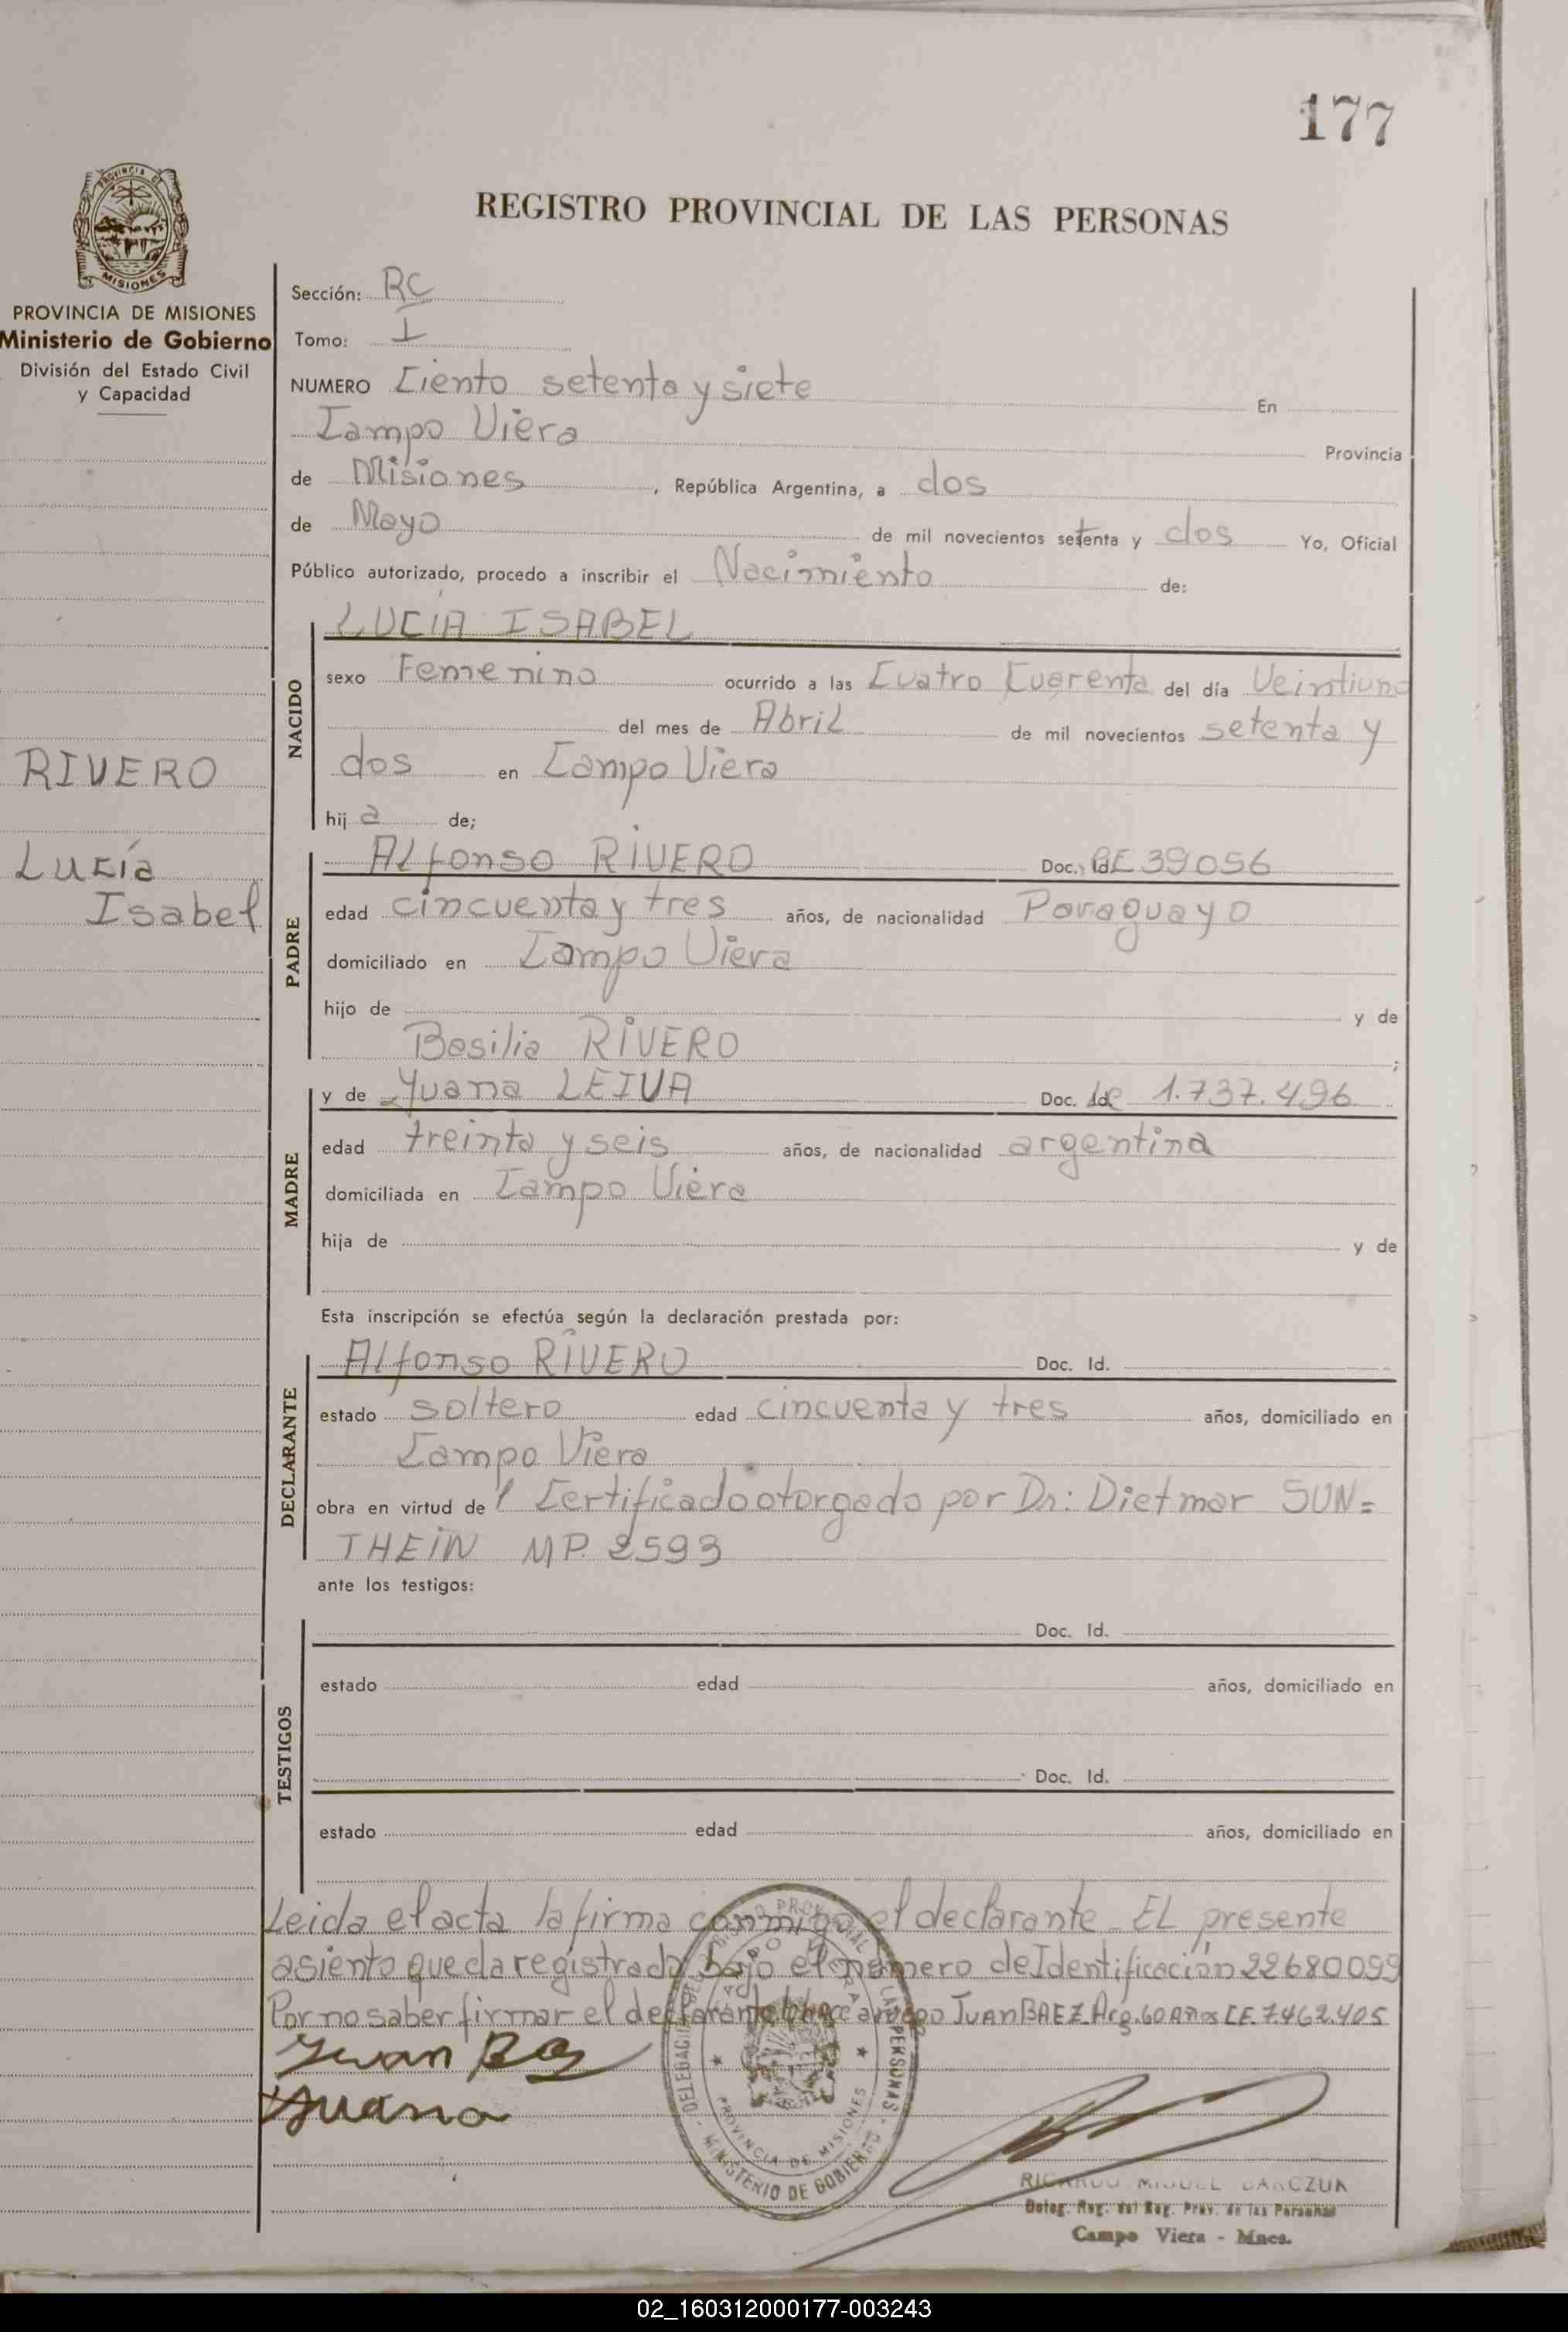 177
REGISTRO PROVINCIAL DE LAS PERSONAS
PROVINCIA DE MISIONES
Ministerio de Gobierno
División del Estado Civil
y Capacidad
Sección: RC
Tomo: I
NUMERO Ciento setenta y siete En
Campo Viera Provincia
de Misiones, República Argentina, a dos
de Mayo de mil novecientos setenta y dos Yo, Oficial
Público autorizado, procedo a inscribir el Nacimiento de:
LUCIA ISABEL
NACIDO
sexo Femenino ocurrido a las Cuatro Cuarenta del día Veintiuno
del mes de Abril de mil novecientos setenta y
dos en Campo Viera
hija de;
RIVERO
Lucía
Isabel
Alfonso RIVERO Doc. Id. 39056
PADRE
edad cincuenta y tres años, de nacionalidad Paraguayo
domiciliado en Campo Viera
hijo de y de
Basilia RIVERO ;
y de Juana LEIVA Doc. Id. 1.737.496
MADRE
edad treinta y seis años, de nacionalidad argentina
domiciliada en Campo Viera
hija de y de
Esta inscripción se efectúa según la declaración prestada por:
Alfonso RIVERO Doc. Id.
DECLARANTE
estado soltero edad cincuenta y tres años, domiciliado en
Campo Viera
obra en virtud de l Certificado otorgado por Dr: Dietmar SUN=
THEIN MP. 2593
ante los testigos:
Doc. Id.
TESTIGOS
estado edad años, domiciliado en
Doc. Id.
estado edad años, domiciliado en
Leida el acta la firma conmigo el declarante EL presente
asiento queda registrado bajo el número de Identificación 22680099
Por no saber firmar el declarante lo hace a ruego JUAN BAEZ Arg. 60 Años LE. 7.462.405
Juan
Juana
DELEGACION REGISTRO PROVINCIAL DE LAS PERSONAS
CAMPO VIERA
PROVINCIA DE MISIONES
MINISTERIO DE GOBIERNO
RICARDO MIGUEL BARCZUK
Deleg. Reg. del Reg. Prov. de las Personas
Campo Viera - Mnes.
02_160312000177-003243